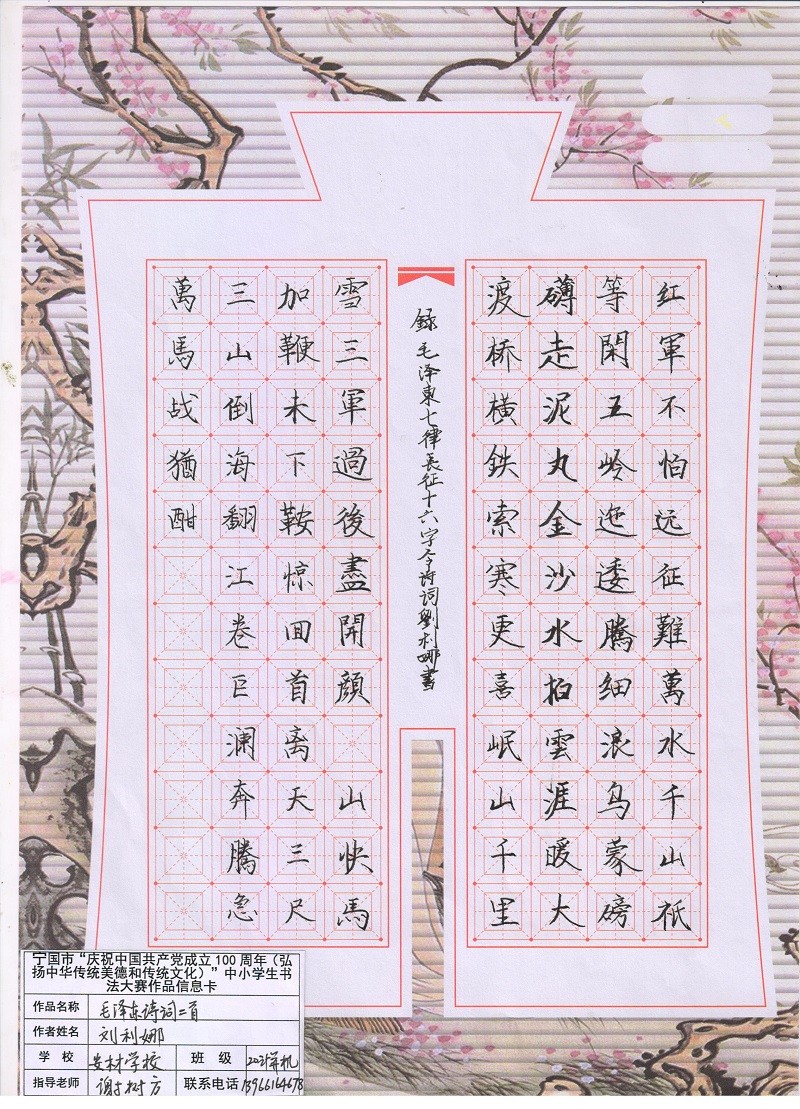 红軍不怕远征難萬水千山衹
等閑五岭迤逶騰细浪乌蒙磅
礴走泥丸金沙水拍雲涯暖大
渡桥横鉄索寒更喜岷山千里
録毛泽東七律長征十六字令诗词劉利娜書
雪三軍過後盡開顔 山快馬
加鞭未下鞍惊回首离天三尺
三山倒海翻江卷巨澜奔騰急
萬馬战猶酣
宁国市“庆祝中国共产党成立100周年（弘
扬中华传统美德和传统文化）”中小学生书
法大赛作品信息卡
作品名称 毛泽东诗词二首
作者姓名 刘利娜
学校 安材学校 班级
指导老师 谢树方 联系电话 13966164678